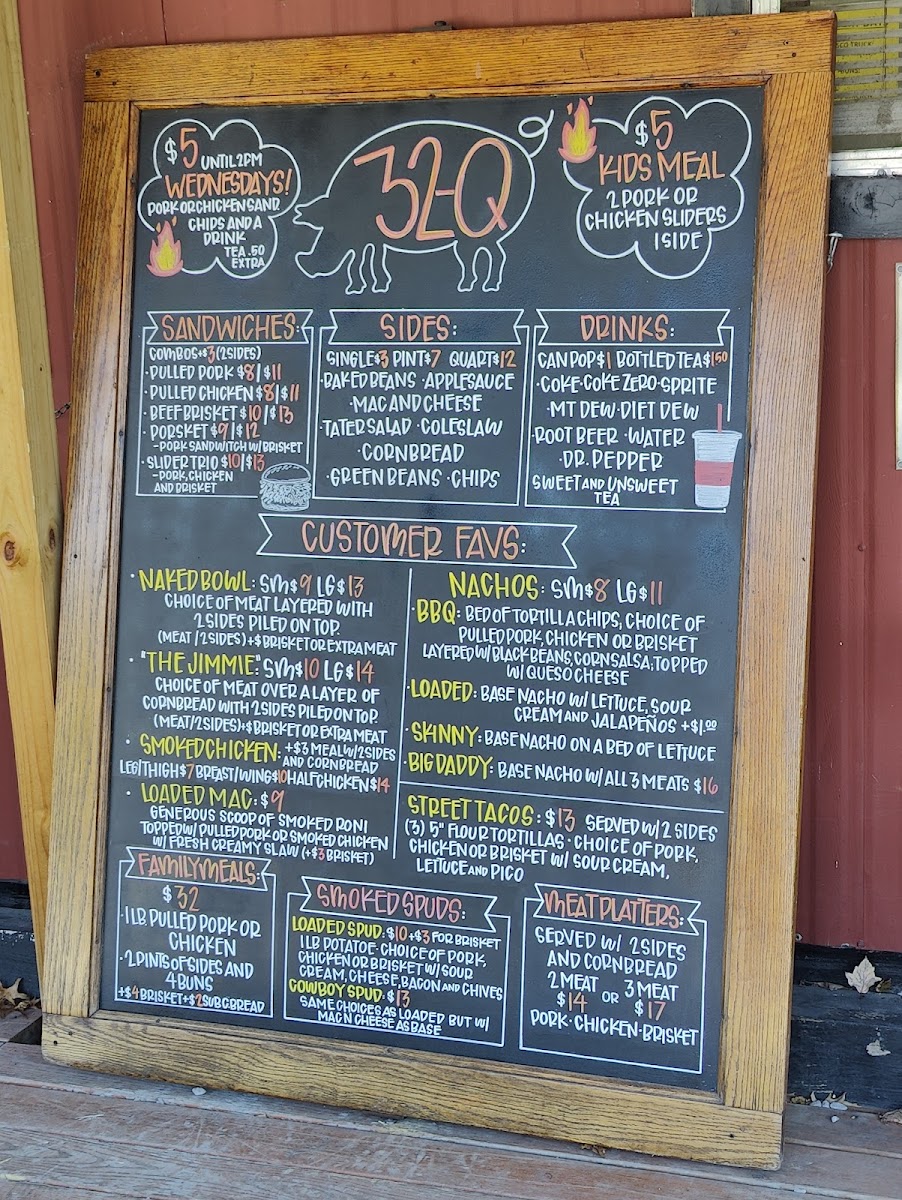 $5 UNTIL 2PM
WEDNESDAYS!
PORK OR CHICKEN SAND
CHIPS AND A
DRINK
TEA .50
EXTRA
32-Q
$5
KIDS MEAL
2 PORK OR
CHICKEN SLIDERS
1 SIDE
SANDWICHES:
COMBOS+$3(2SIDES)
·PULLED PORK $8/$11
·PULLED CHICKEN $8/$11
·BEEF BRISKET $10/$13
·PORSKET $9/$12
-PORK SANDWITCH W/ BRISKET
·SLIDER TRIO $10/$13
-PORK, CHICKEN
AND BRISKET
SIDES:
SINGLE $3 PINT $7 QUART $12
·BAKED BEANS ·APPLESAUCE
·MAC AND CHEESE
·TATER SALAD ·COLESLAW
·CORNBREAD
·GREEN BEANS ·CHIPS
DRINKS:
CAN POP $1 BOTTLED TEA $1.50
·COKE·COKE ZERO·SPRITE
·MT DEW·DIET DEW
·ROOT BEER ·WATER
·DR. PEPPER
SWEET AND UNSWEET
TEA
CUSTOMER FAVS:
·NAKED BOWL: SM $9 LG $13
CHOICE OF MEAT LAYERED WITH
2 SIDES PILED ON TOP.
(MEAT/2SIDES)+$ BRISKET OR EXTRA MEAT
·"THE JIMMIE": SM $10 LG $14
CHOICE OF MEAT OVER A LAYER OF
CORNBREAD WITH 2 SIDES PILED ON TOP.
(MEAT/2SIDES)+$ BRISKET OR EXTRA MEAT
·SMOKED CHICKEN: +$3 MEAL W/ 2 SIDES
AND CORNBREAD
LEG/THIGH $7 BREAST/WING $10 HALF CHICKEN $14
·LOADED MAC: $9
GENEROUS SCOOP OF SMOKED RONI
TOPPED W/ PULLED PORK OR SMOKED CHICKEN
W/ FRESH CREAMY SLAW (+$3 BRISKET)
NACHOS: SM $8 LG $11
·BBQ: BED OF TORTILLA CHIPS, CHOICE OF
PULLED PORK, CHICKEN OR BRISKET
LAYERED W/ BLACK BEANS, CORN SALSA; TOPPED
W/ QUESO CHEESE
·LOADED: BASE NACHO W/ LETTUCE, SOUR
CREAM AND JALAPEÑOS +$1.00
·SKINNY: BASE NACHO ON A BED OF LETTUCE
·BIG DADDY: BASE NACHO W/ ALL 3 MEATS $16
STREET TACOS: $13 SERVED W/ 2 SIDES
(3) 5" FLOUR TORTILLAS · CHOICE OF PORK,
CHICKEN OR BRISKET W/ SOUR CREAM,
LETTUCE AND PICO
FAMILY MEALS:
$32
·1 LB PULLED PORK OR
CHICKEN
·2 PINTS OF SIDES AND
4 BUNS
+$4 BRISKET+$2 SUB C.BREAD
SMOKED SPUDS:
LOADED SPUD: $10 +$3 FOR BRISKET
1 LB POTATOE·CHOICE OF PORK,
CHICKEN OR BRISKET W/ SOUR
CREAM, CHEESE, BACON AND CHIVES
COWBOY SPUD: $13
SAME CHOICES AS LOADED BUT W/
MAC N CHEESE AS BASE
MEAT PLATTERS:
SERVED W/ 2 SIDES
AND CORNBREAD
2 MEAT OR 3 MEAT
$14 $17
PORK·CHICKEN·BRISKET